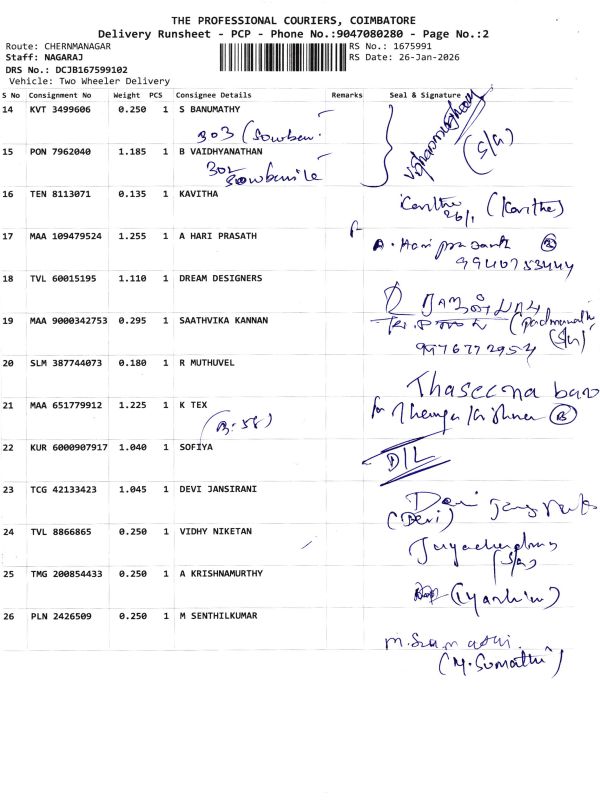 THE PROFESSIONAL COURIERS, COIMBATORE
Delivery Runsheet - PCP - Phone No.:9047080280 - Page No.:2
Route: CHERNMANAGAR
RS No.: 1675991
Staff: NAGARAJ
RS Date: 26-Jan-2026
DRS No.: DCJB167599102
Vehicle: Two Wheeler Delivery
S No Consignment No Weight PCS Consignee Details Remarks Seal & Signature
14 KVT 3499606 0.250 1 S BANUMATHY
303 (Sowban.
(S/G)
15 PON 7962040 1.185 1 B VAIDHYANATHAN
302
16 TEN 8113071 0.135 1 KAVITHA
Kavitha (Kavitha)
26/1
17 MAA 109479524 1.255 1 A HARI PRASATH
A. Hari prasanth
9940753444
18 TVL 60015195 1.110 1 DREAM DESIGNERS
19 MAA 9000342753 0.295 1 SAATHVIKA KANNAN
(S/G)
9976772954
20 SLM 387744073 0.180 1 R MUTHUVEL
Thaseena banu
21 MAA 651779912 1.225 1 K TEX
for (B)
(B.58)
22 KUR 6000907917 1.040 1 SOFIYA
D/L
23 TCG 42133423 1.045 1 DEVI JANSIRANI
Devi
(Devi)
24 TVL 8866865 0.250 1 VIDHY NIKETAN
(S/G)
25 TMG 200854433 0.250 1 A KRISHNAMURTHY
(Yashim)
26 PLN 2426509 0.250 1 M SENTHILKUMAR
(M. Sumathi)